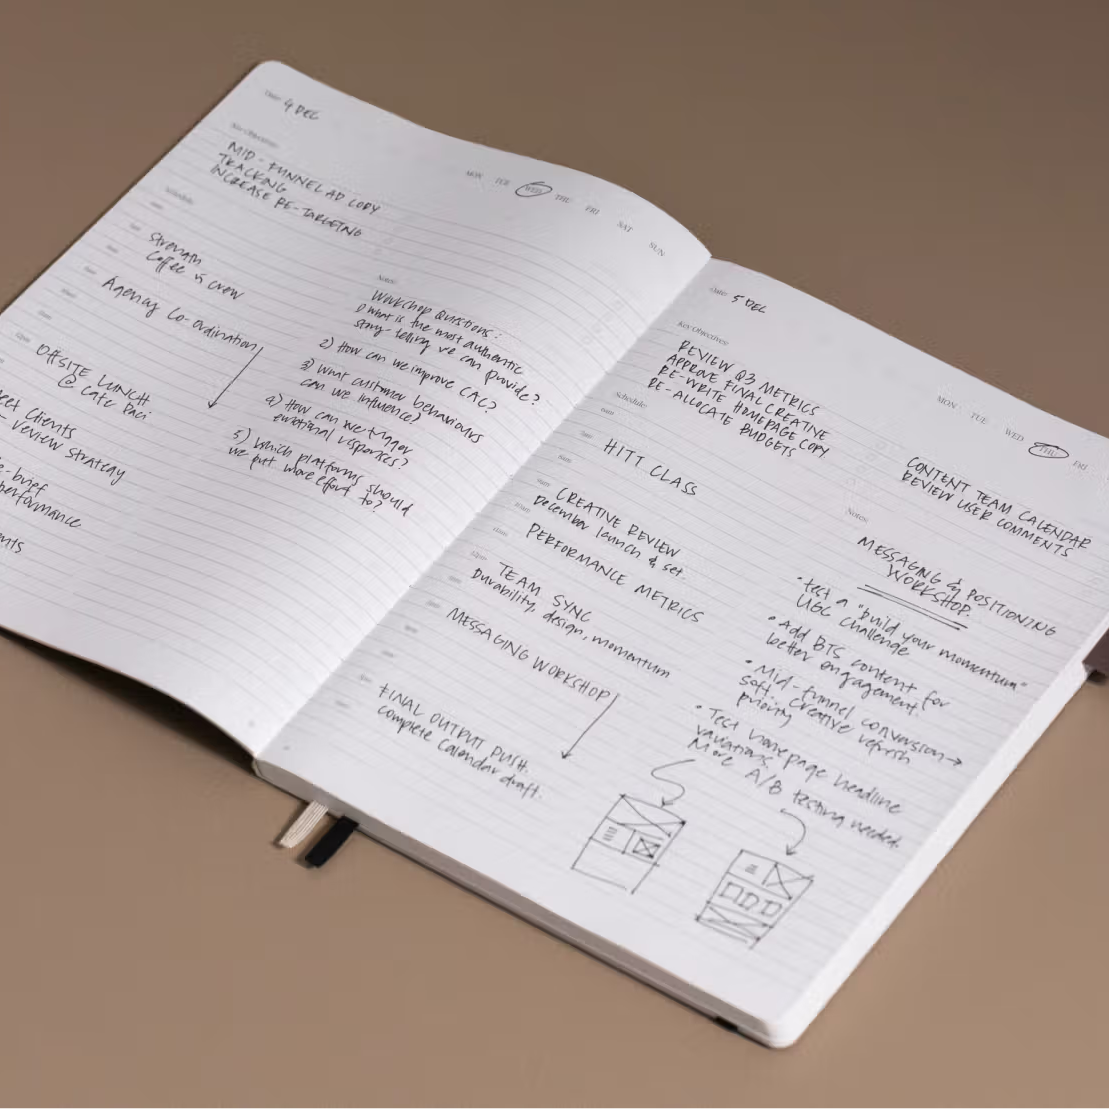 Date: 4 DEC
MON TUE WED THU FRI SAT SUN
Key Objectives:
MID-FUNNEL AD COPY
TRACKING
INCREASE RE-TARGETING
Schedule:
Strength
Coffee w crew
Agency Co-ordination
12pm
OFFSITE LUNCH
@ Cafe Paci
eet Clients
- review strategy
e-brief
performance
nts
Notes:
Workshop Questions:
1) What is the most authentic
story-telling we can provide?
2) How can we improve CAC?
3) What customer behaviours
can we influence?
4) How can we trigger
emotional responses?
5) Which platforms should
we put more effort to?
Date: 5 DEC
MON TUE WED THU FRI
Key Objectives:
REVIEW Q3 METRICS
APPROVE FINAL CREATIVE
RE-WRITE HOMEPAGE COPY
RE-ALLOCATE BUDGETS
CONTENT TEAM CALENDAR
REVIEW USER COMMENTS
Schedule:
6am
7am
HITT CLASS
8am
9am
CREATIVE REVIEW
December launch & set.
10am
11am
PERFORMANCE METRICS
12pm
TEAM SYNC
Durability, design, momentum
MESSAGING WORKSHOP
FINAL OUTPUT PUSH.
Complete Calendar draft.
Notes:
MESSAGING & POSITIONING
WORKSHOP.
• Test a "build your momentum"
UGC challenge
• Add BTS content for
better engagement.
• Mid-funnel conversion →
soft. Creative refresh
priority
• Test homepage headline
variations.
More A/B testing needed.